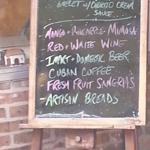 W/ CHORIZO CREAM
SAUCE
MANGO + PINEAPPLE MIMOSA
RED + WHITE WINE
IMPORT + DOMESTIC BEER
CUBAN COFFEE
FRESH FRUIT SANGRIAS
- ARTISAN BREADS